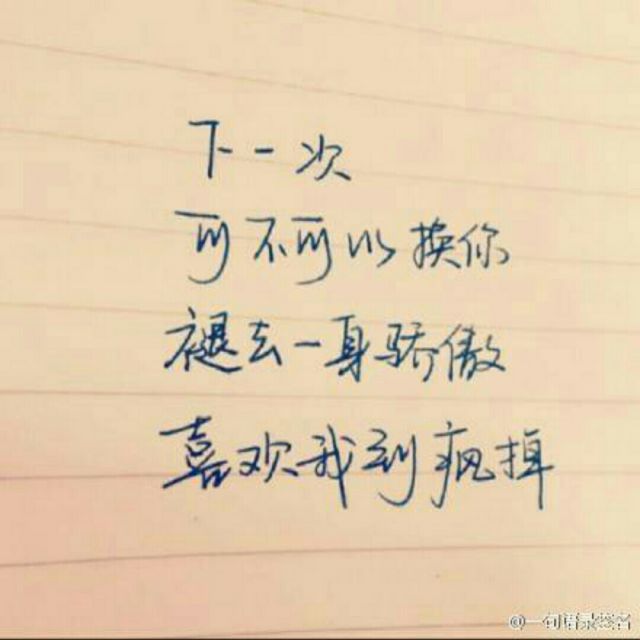 下一次
可不可以换你
褪去一身骄傲
喜欢我到疯掉
@一句语录签名